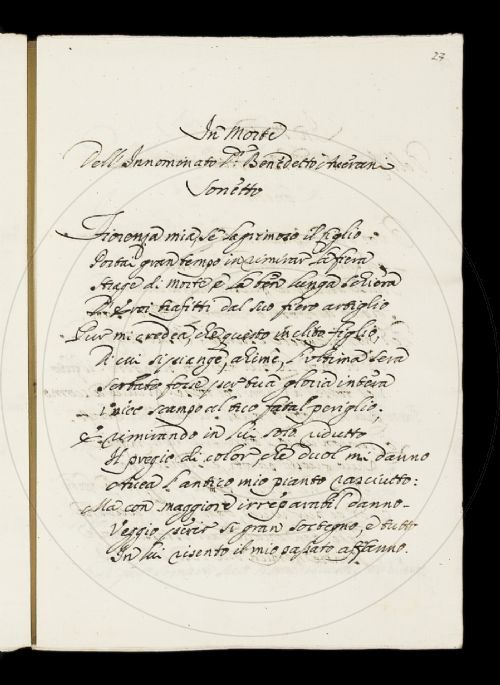 27
In Morte
Dell' Innominato D.r Benedetto Averani
Sonetto
Fiorenza mia, se lagrimoso il ciglio
Portai gran tempo in rimirar la fiera
Strage di morte, e la ben lunga schiera
D' Eroi trafitti dal suo fiero artiglio
Pur mi credea, che questo inclito figlio,
Di cui si piange, ahimè, l' ultima sera
Serbato fosse per tua gloria intera
Unico scampo al tuo fatal periglio;
E rimirando in lui solo ridutto
Il pregio di color, che duol mi danno
Avea l' antico mio pianto rasciutto:
Ma con maggiore irreparabil danno
Veggio perir sì gran sostegno, e tutto
In lui risento il mio passato affanno.